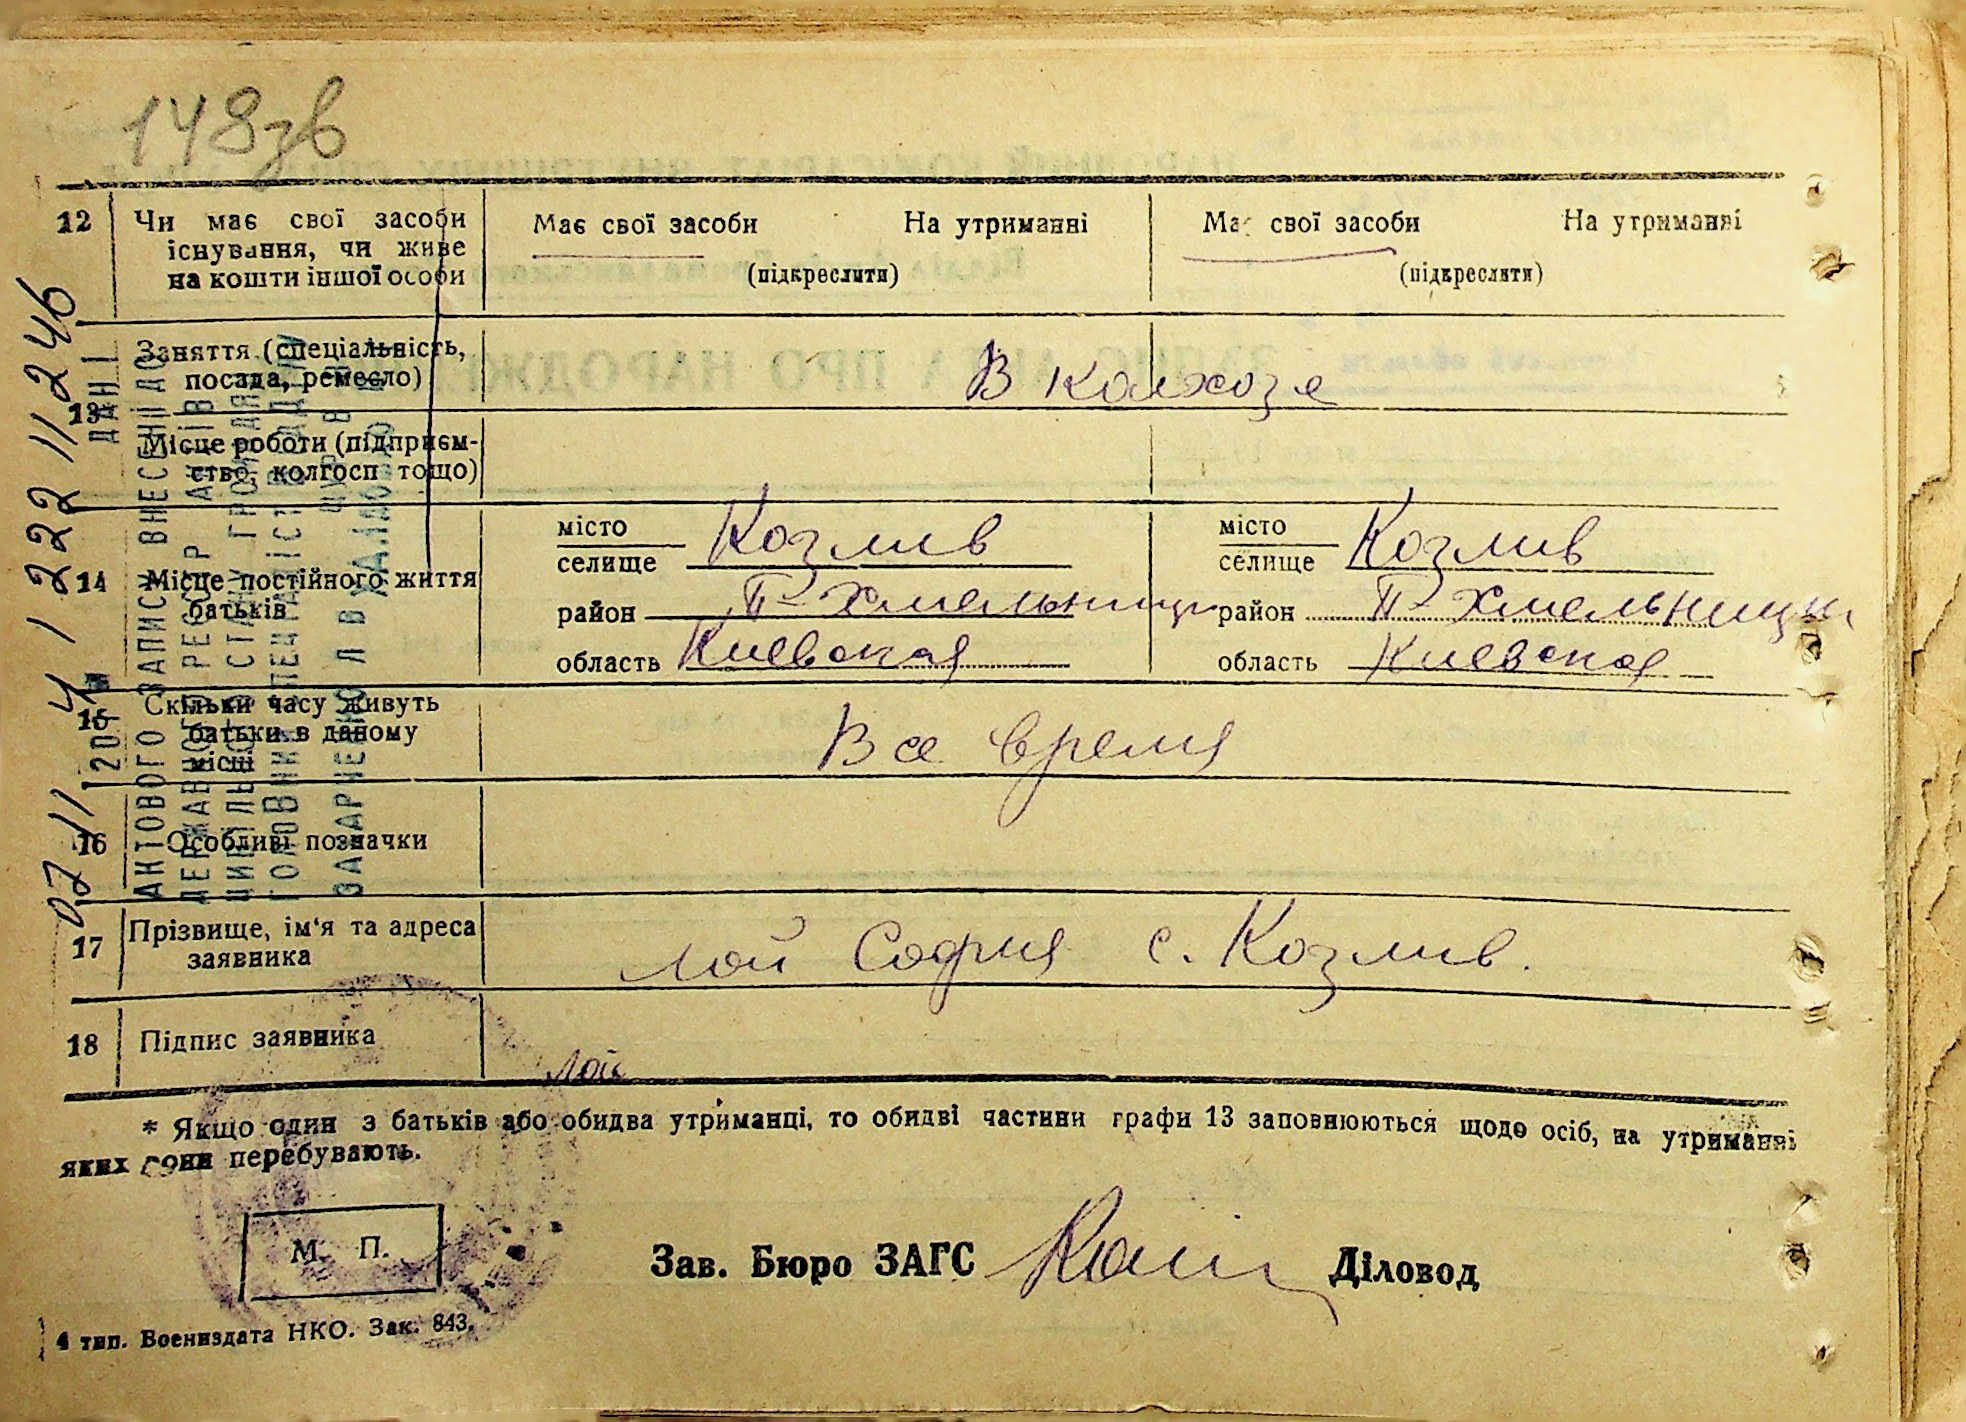 148зв
12 Чи має свої засоби існування, чи живе на кошти іншої особи
Має свої засоби На утриманні
(підкреслити)
Має свої засоби На утриманні
(підкреслити)
13 Заняття (спеціальність, посада, ремесло)
В колхозе
Місце роботи (підприєм-
ство, колгосп тощо)
14 Місце постійного життя батьків
місто
селище Козлив
район П-Хмельницки
область Киевская
місто
селище Козлив
район П-Хмельницки
область Киевская
15 Скільки часу живуть батьки в даному місці
Все время
16 Особливі позначки
17 Прізвище, ім'я та адреса заявника
Лой София с. Козлив.
18 Підпис заявника
Лой
* Якщо один з батьків або обидва утриманці, то обидві частини графи 13 заповнюються щодо осіб, на утриманні
яких вони перебувають.
М. П.
Зав. Бюро ЗАГС Діловод
4 тип. Воениздата НКО. Зак. 843.
ДАНІ
АКТОВОГО ЗАПИСУ ВНЕСЕНІ ДО
ДЕРЖАВНОГО РЕЄСТРУ АКТІВ
ЦИВІЛЬНОГО СТАНУ ГРОМАДЯН